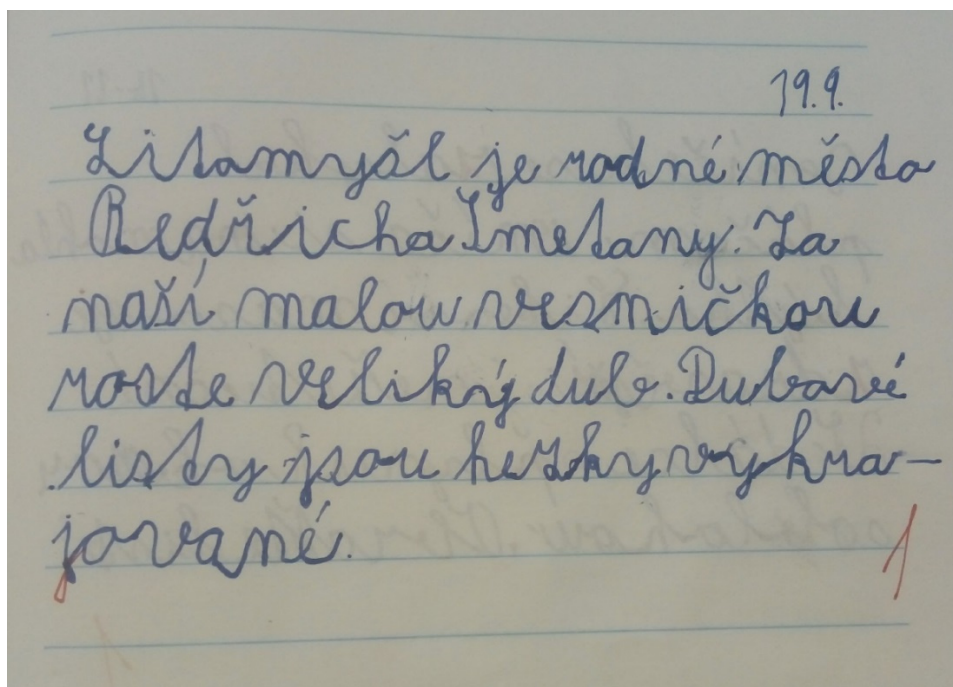 19.9.
Litomyšl je rodné město
Bedřicha Smetany. Za
naší malou vesničkou
roste veliký dub. Dubové
listy jsou hezky vykra-
jované.
1